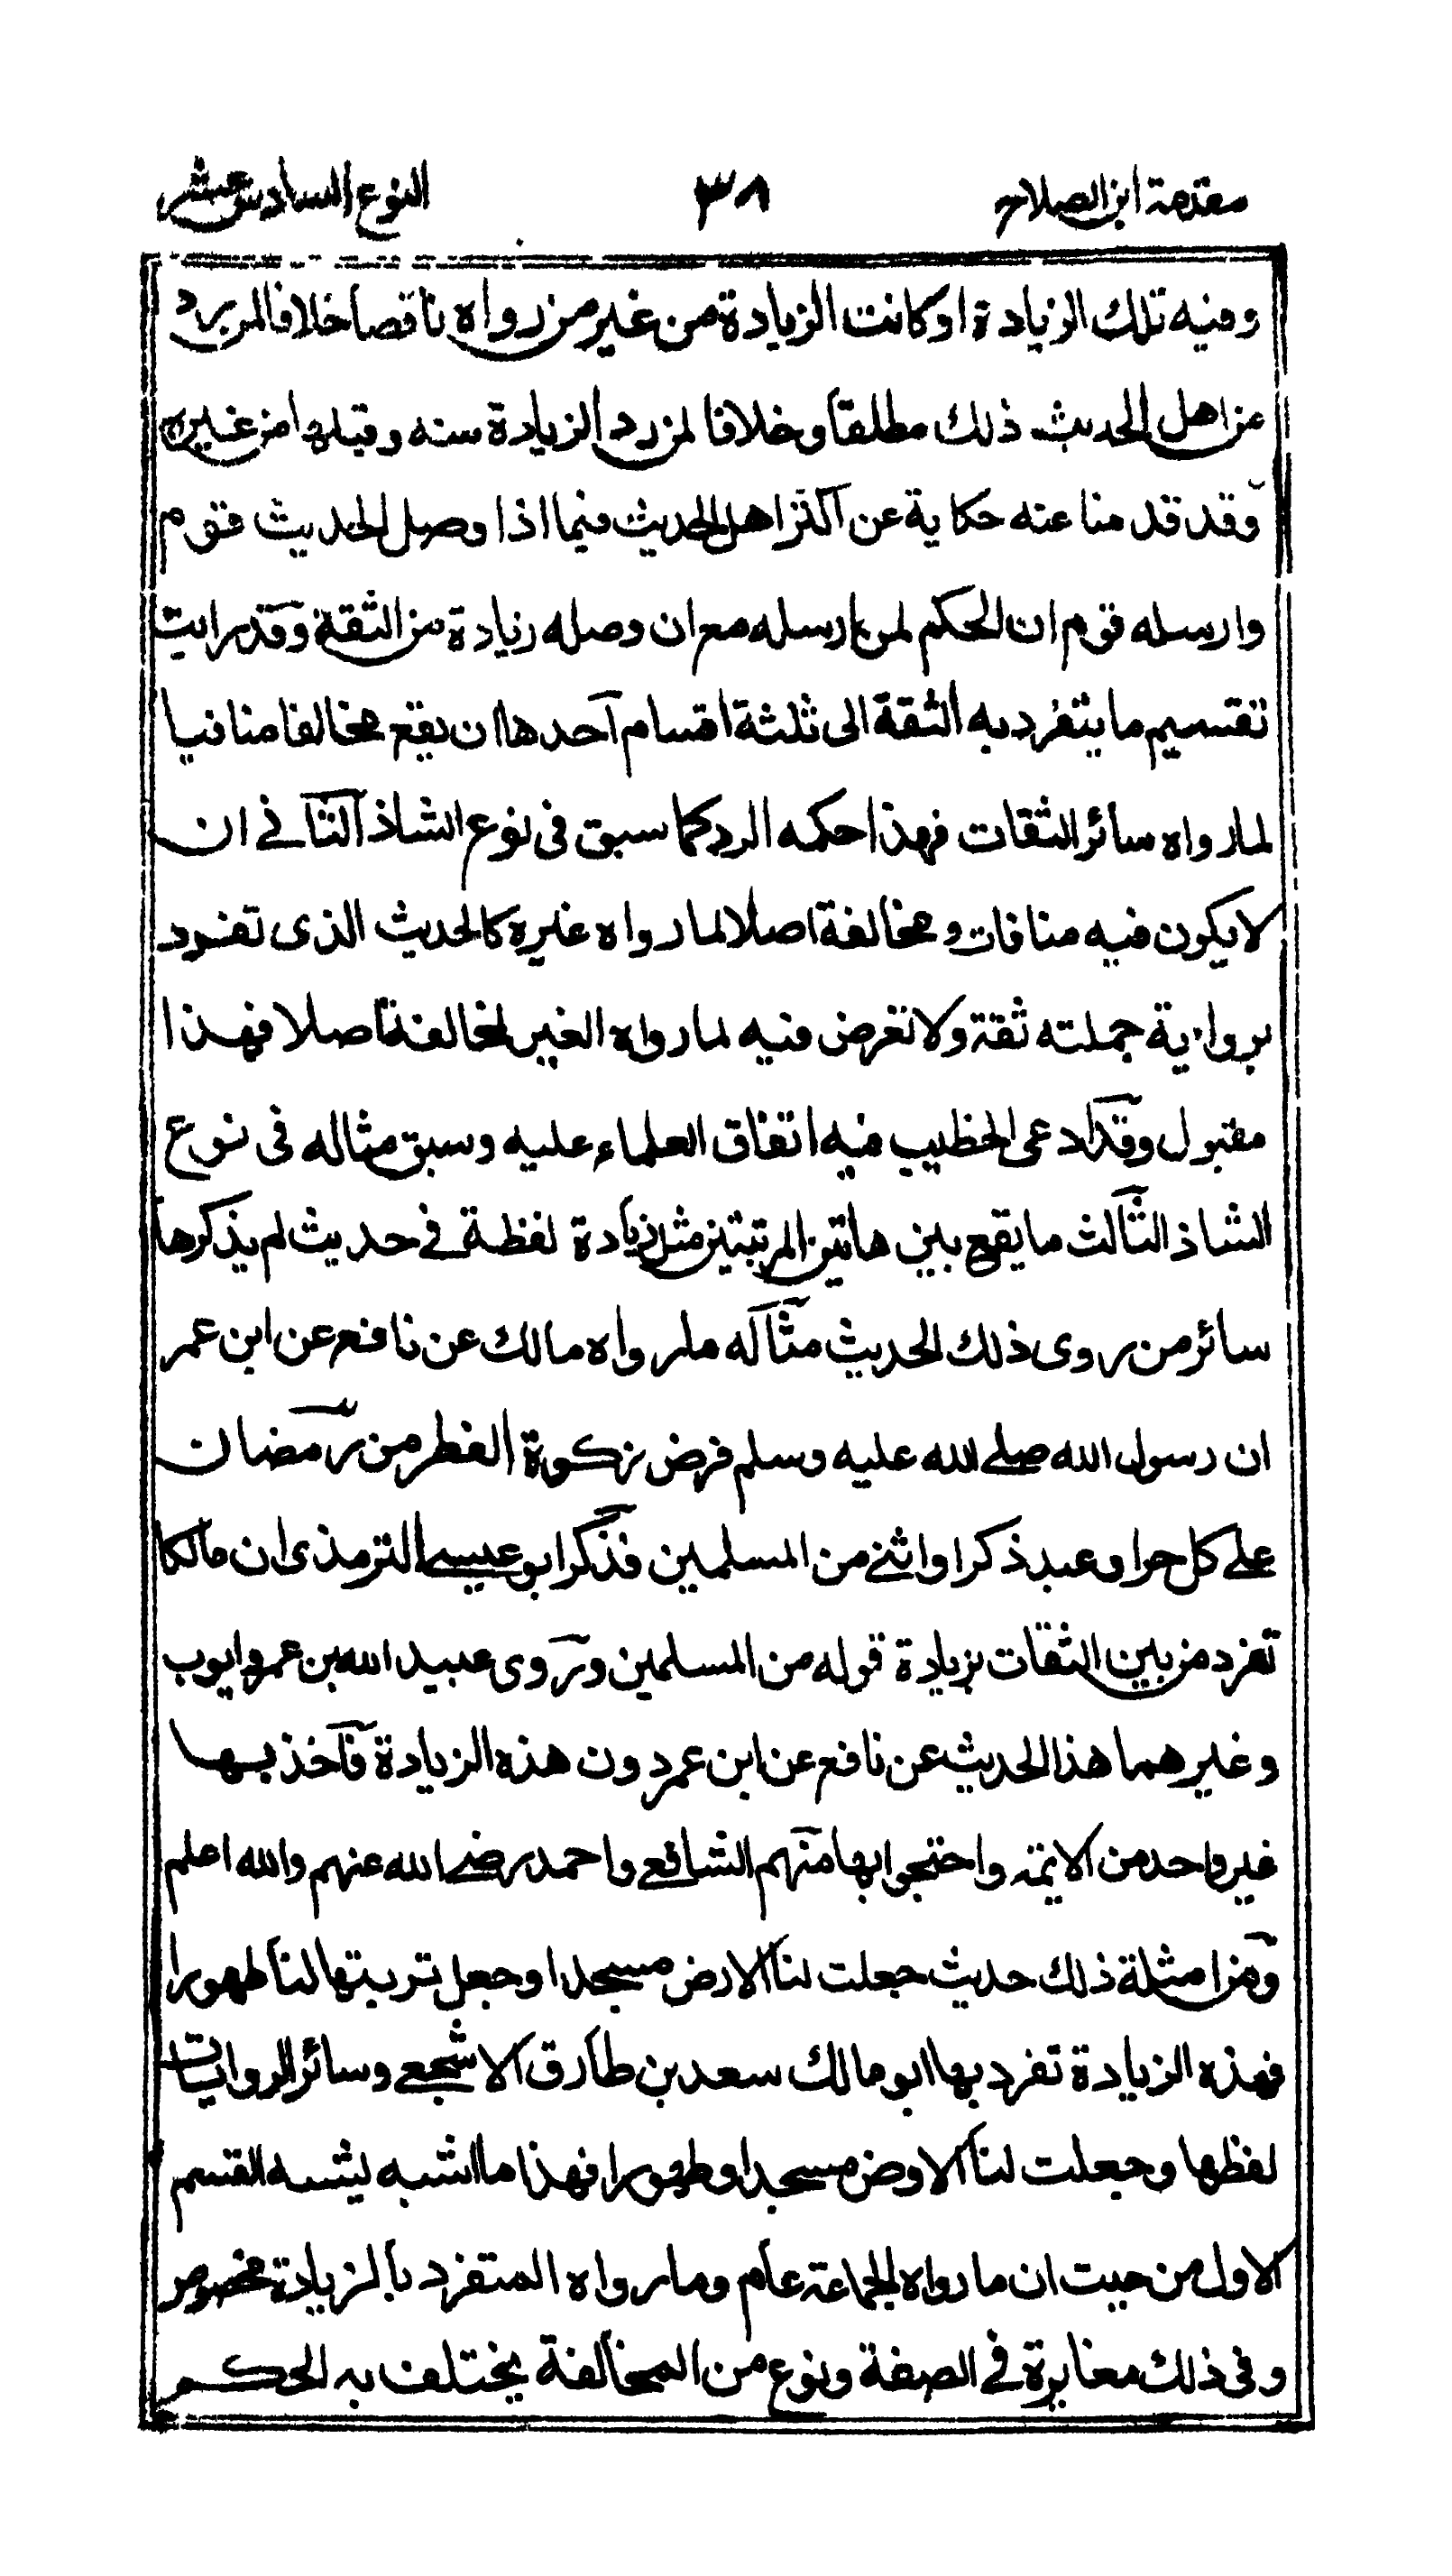 مقدمة ابن الصلاح ٣٨ النوع السادس عشر
وفيه تلك الزيادة اوكانت الزيادة من غير من رواه ناقصا خلافا لمن يرد
من اهل الحديث ذلك مطلقا وخلافا لمن رد الزيادة منه وقبلها من غيره
وقد قدمنا عنه حكاية عن اكثر اهل الحديث فيما اذا وصل الحديث قوم
وارسله قوم ان الحكم لمن ارسله مع ان وصله زيادة من الثقة وقد رايت
تقسيم ما يتفرد به الثقة الى ثلثة اقسام احدها ان يقع مخالفا منافيا
لما رواه سائر الثقات فهذا حكمه الرد كما سبق فى نوع الشاذ الثانى ان
لا يكون فيه منافات و مخالفة اصلا لما رواه غيره كالحديث الذى تفرد
برواية جملته ثقة ولا تعرض فيه لما رواه الغير لمخالفة اصلا فهذا
مقبول وقد ادعى الخطيب فيه اتفاق العلماء عليه وسبق مثاله فى نوع
الشاذ الثالث ما يقع بين هاتين المرتبتين مثل زيادة لفظة فى حديث لم يذكرها
سائر من روى ذلك الحديث مثاله ما رواه مالك عن نافع عن ابن عمر
ان رسول الله صلى الله عليه وسلم فرض زكوة الفطر من رمضان
على كل حر او عبد ذكر او انثى من المسلمين فذكر ابو عيسى الترمذى ان مالكا
تفرد من بين الثقات بزيادة قوله من المسلمين وروى عبيد الله بن عمر وايوب
وغيرهما هذا الحديث عن نافع عن ابن عمر دون هذه الزيادة فاخذ بها
غير واحد من الائمة واحتجوا بها منهم الشافعى واحمد رضى الله عنهم والله اعلم
ومن امثلة ذلك حديث جعلت لنا الارض مسجدا وجعل تربتها لنا طهورا
فهذه الزيادة تفرد بها ابو مالك سعد بن طارق الاشجعى وسائر الروايات
لفظها وجعلت لنا الاوض مسجدا وطهورا فهذا ما اشبه ليشبه القسم
الاول من حيث ان ما رواه الجماعة عام وما رواه المتفرد بالزيادة مخصوص
وفى ذلك مغايرة فى الصفة ونوع من المخالفة يختلف به الحكم